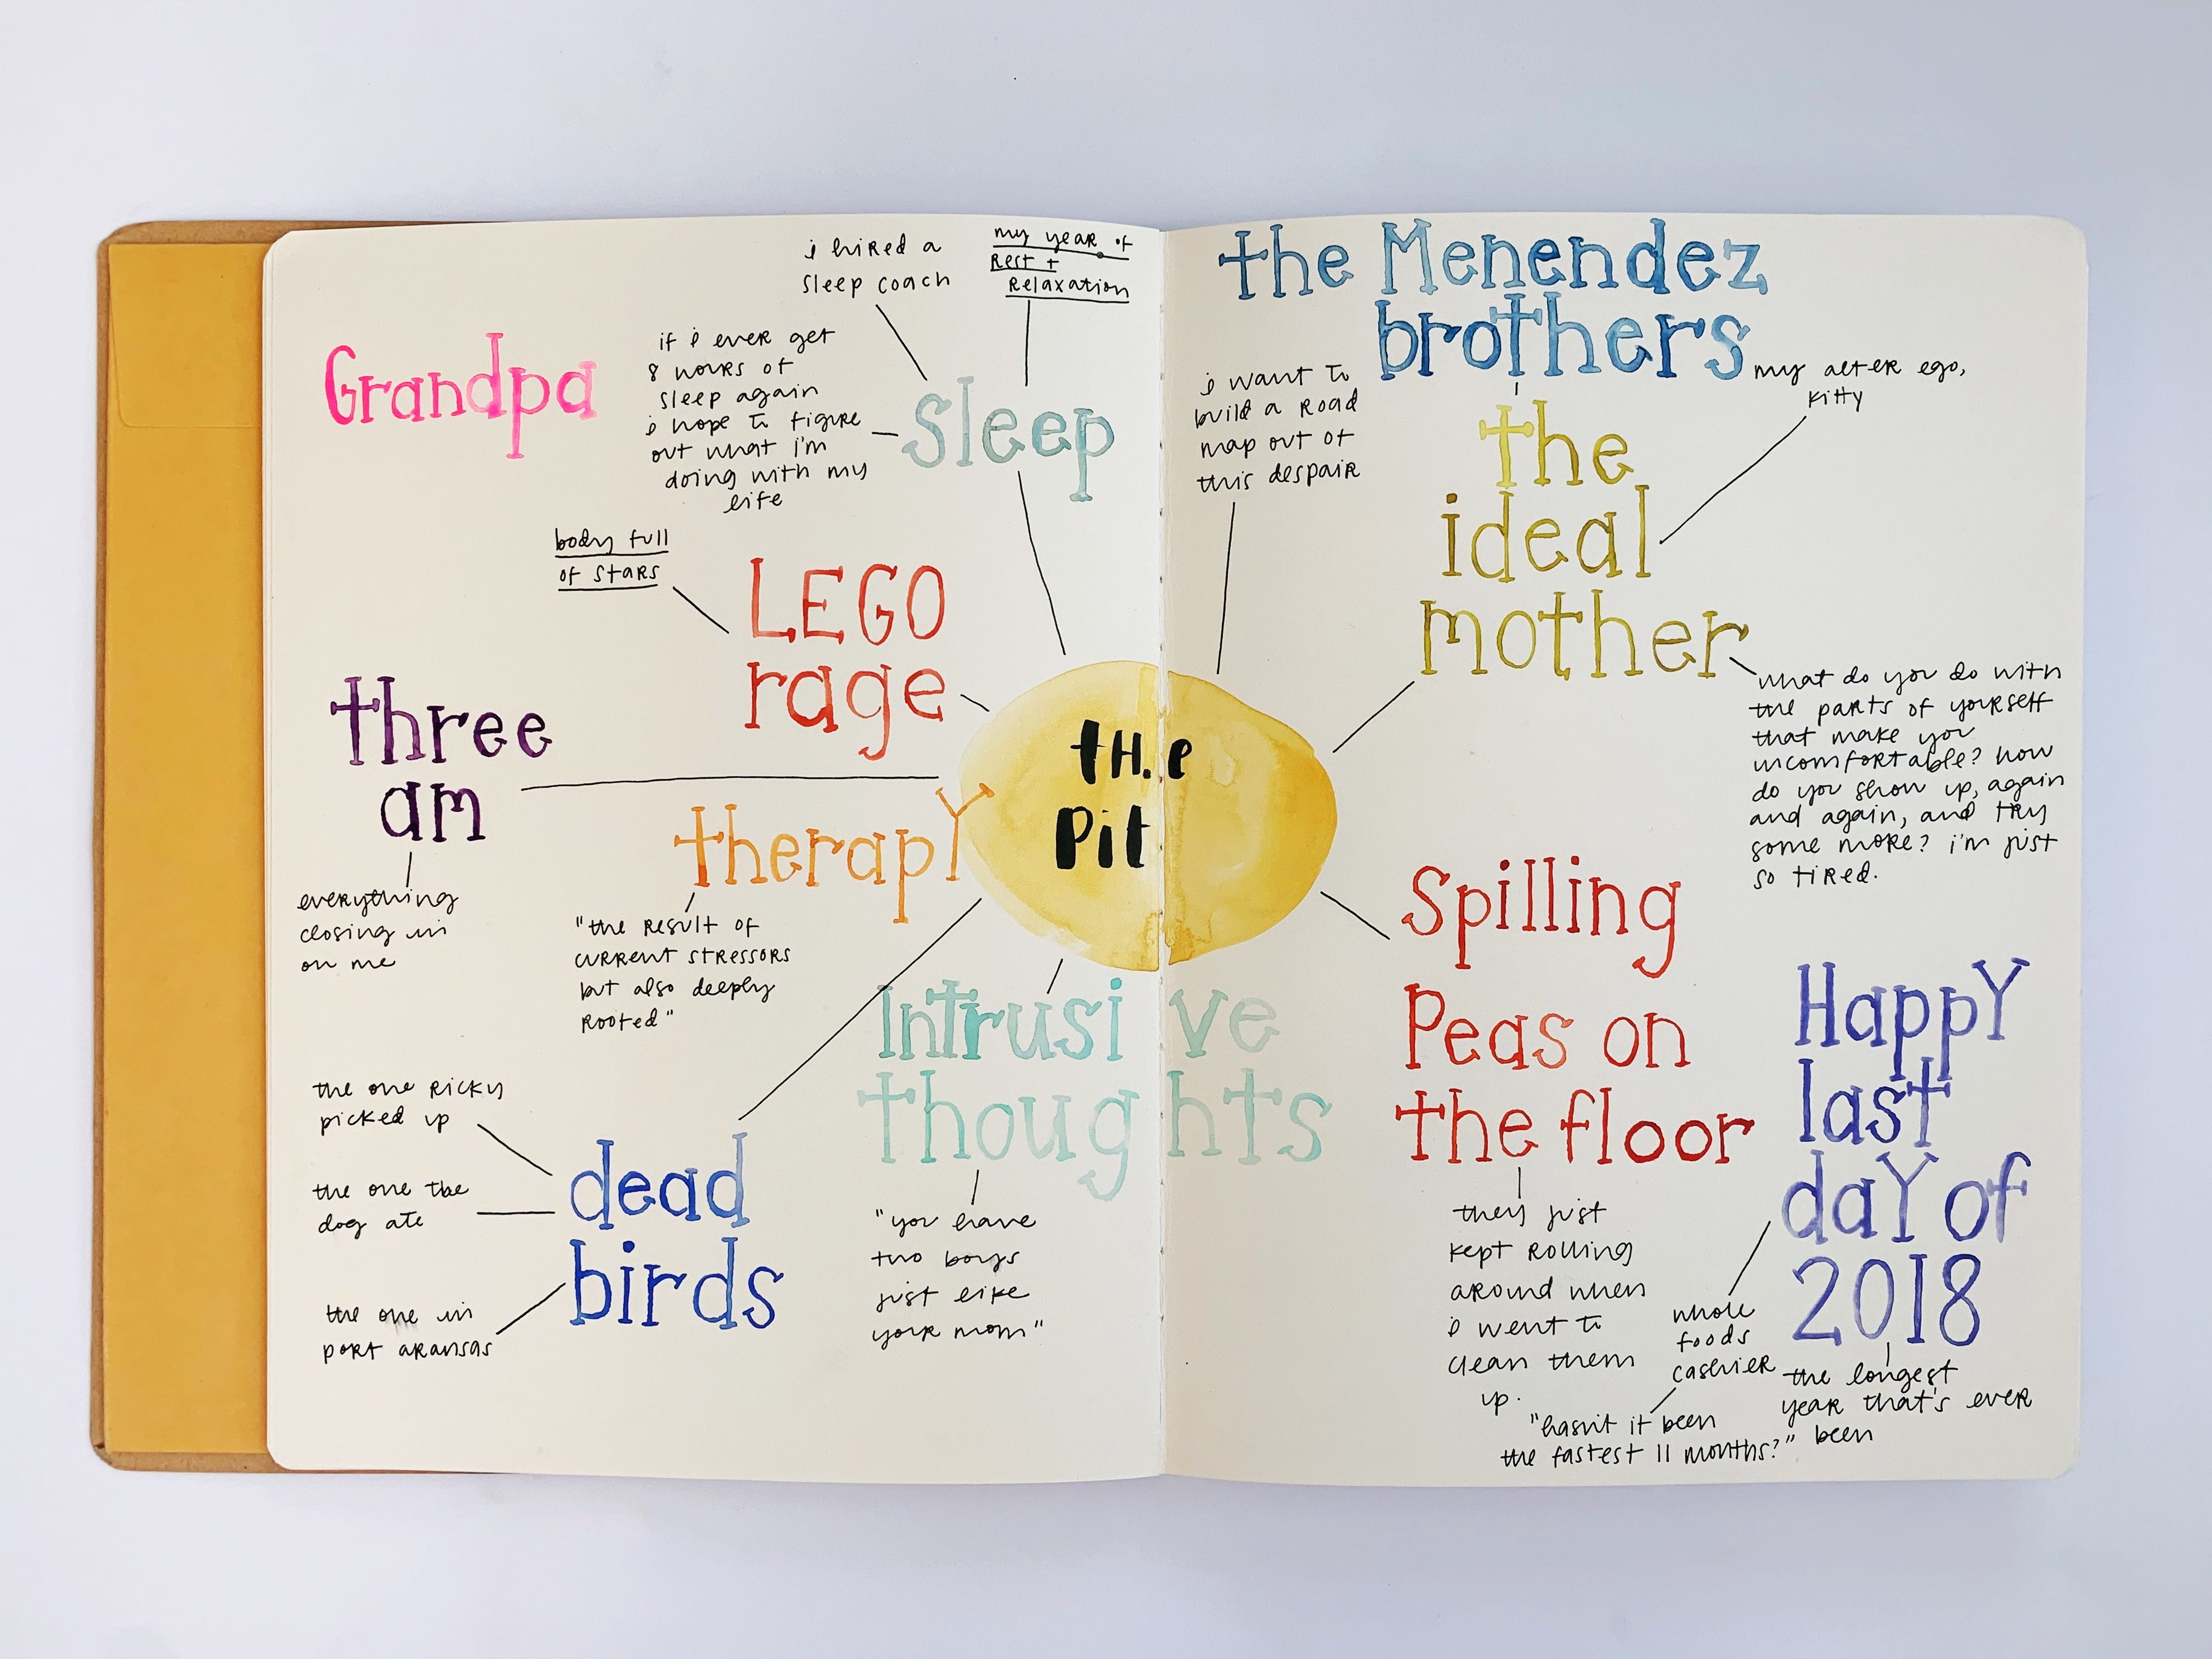 i hired a
sleep coach
my year of
rest +
relaxation
Grandpa
if i ever get
8 hours of
sleep again
i hope to figure
out what i'm
doing with my
life
sleep
body full
of stars
LEGO
rage
three
am
everything
closing in
on me
therapy
"the result of
current stressors
but also deeply
rooted"
the one ricky
picked up
the one the
dog ate
the one in
port aransas
dead
birds
the
pit
Intrusive
thoughts
"you have
two boys
just like
your mom"
the Menendez
brothers
i want to
build a road
map out of
this despair
my alter ego,
kitty
the
ideal
mother
what do you do with
the parts of yourself
that make you
uncomfortable? how
do you show up, again
and again, and try
some more? i'm just
so tired.
Spilling
Peas on
the floor
they just
kept rolling
around when
i went to
clean them
up.
Happy
last
day of
2018
whole
foods
cashier
"hasn't it been
the fastest 11 months?"
the longest
year that's ever
been